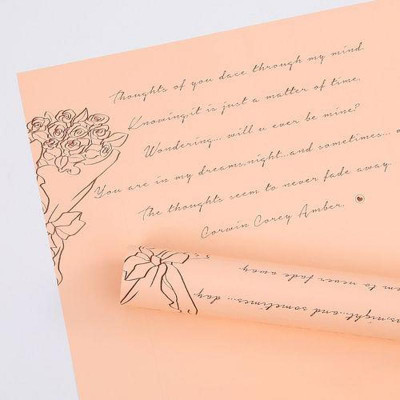 Thoughts of you dace through my mind
Knowing it is just a matter of time.
Wondering... will u ever be mine?
You are in my dreams.night...and sometimes...
The thoughts seem to never fade away.
Corwin Corey Amber.
m to never fade away.
s.night...and sometimes... day